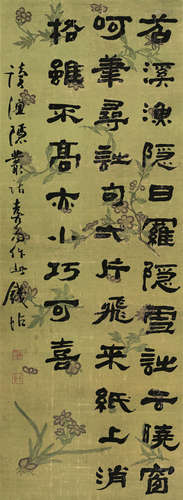 苕溪漁隱曰羅隱雪詩云曉窗
呵筆尋詩句弌片飛來紙上消
格雖不高亦小巧可喜
讀漁隱叢話作此錢坫